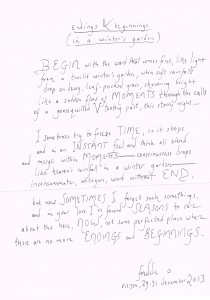 Endings & beginnings
(in a winter's garden)
BEGIN with the word that comes first, like light
from a twilit winter's garden, when soft rainfalls
drop on dewy, leaf-posed grass, showing bright
like a sudden flow of MOMENTS through the walls
of a passing past, this starry night...
I sometimes try to freeze TIME, so it stops
and in an INSTANT feel and think all blend
and merge within MOMENTS conscious drops
like heaven's rainfall in a winter garden
incommensurate, unbegun, word without END,
but now SOMETIMES I forget such, somethings,
and in your love I'm found SEASONS to care
about the here, NOW, not some perfected place where
there are no more ENDINGS and BEGINNINGS.
29-31 December 2013